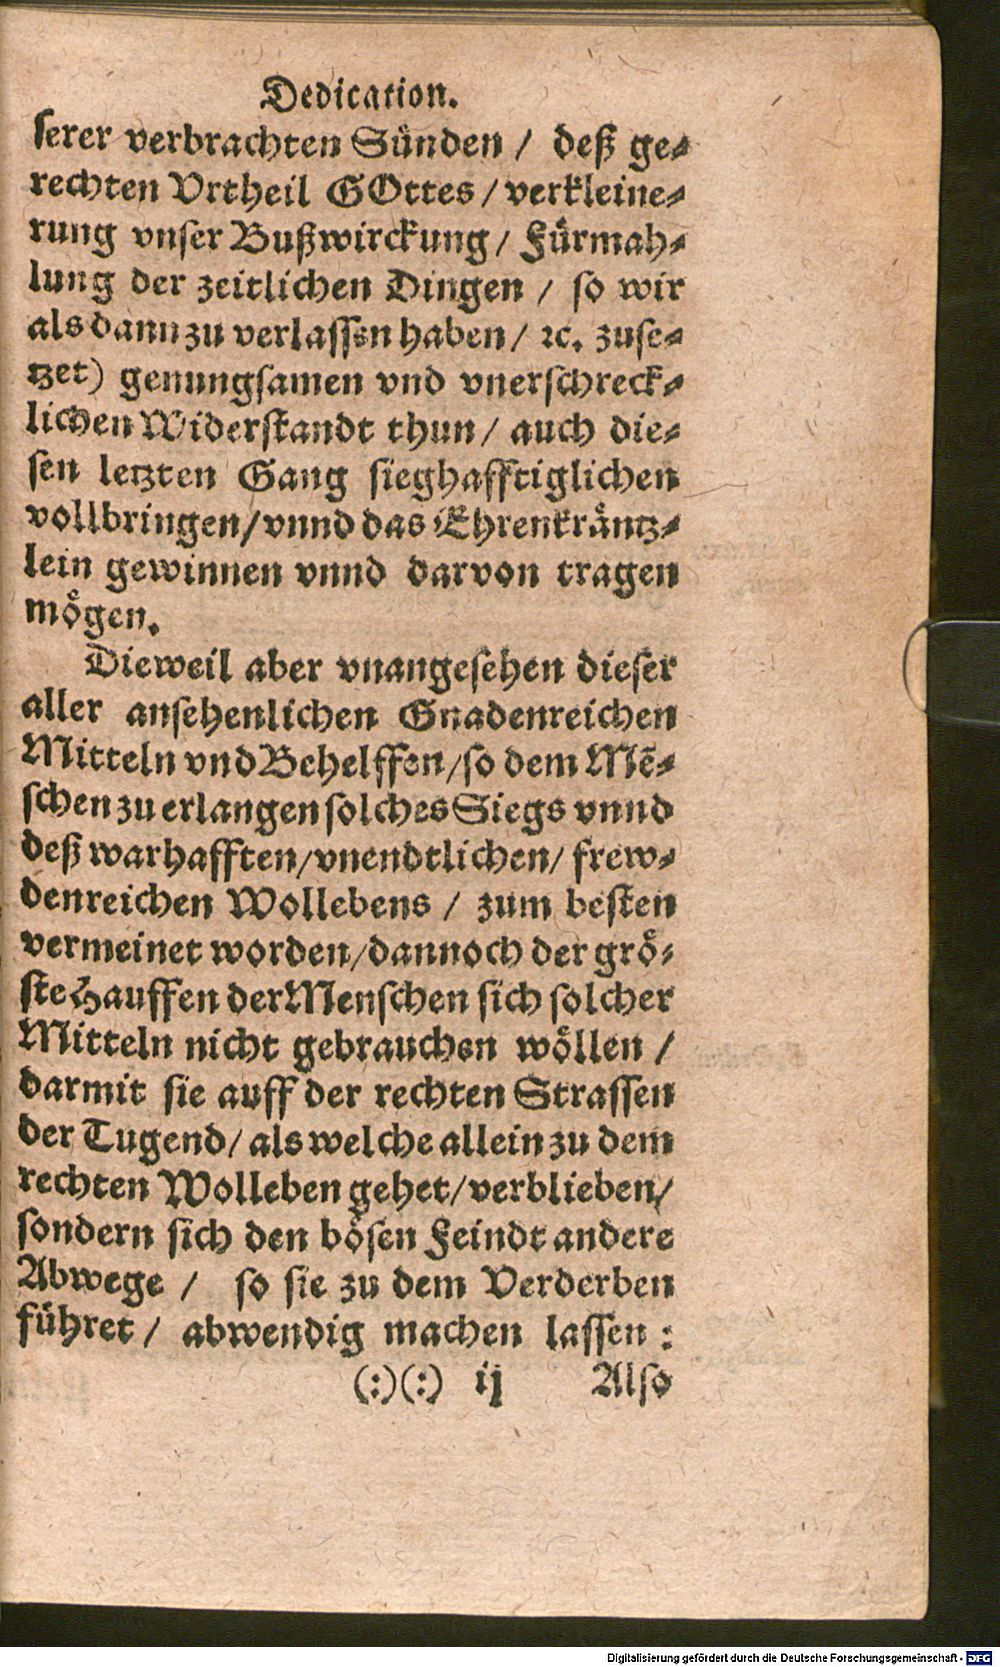 Dedication.
serer verbrachten Sünden / deß ge-
rechten Vrtheil GOttes / verkleine-
rung vnser Bußwirckung / Fürmah-
lung der zeitlichen Dingen / so wir
als dann zu verlassen haben / ꝛc. zuse-
tzet) genungsamen vnd vnerschreck-
lichen Widerstandt thun / auch die-
sen letzten Gang sieghafftiglichen
vollbringen / vnnd das Ehrenkräntz-
lein gewinnen vnnd darvon tragen
mögen.
Dieweil aber vnangesehen dieser
aller ansehenlichen Gnadenreichen
Mitteln vnd Behelffen / so dem Mẽ-
schen zu erlangen solches Siegs vnnd
deß warhafften / vnendtlichen / frew-
denreichen Wollebens / zum besten
vermeinet worden / dannoch der grö-
ste Hauffen der Menschen sich solcher
Mitteln nicht gebrauchen wöllen /
darmit sie auff der rechten Strassen
der Tugend / als welche allein zu dem
rechten Wolleben gehet / verblieben /
sondern sich den bösen Feindt andere
Abwege / so sie zu dem Verderben
führet / abwendig machen lassen :
(:)(:) ij Also
Digitalisierung gefördert durch die Deutsche Forschungsgemeinschaft - DFG